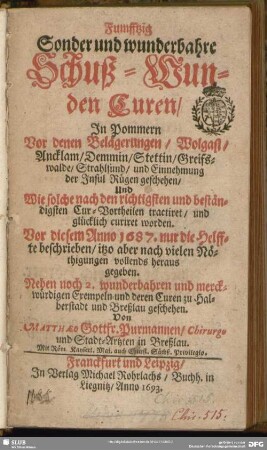 Fumfftzig
Sonder und wunderbahre
Schuß-Wun-
den Curen/
In Pommern
Vor denen Belägerungen/ Wolgast/
Ancklam/ Demmin/ Stettin/ Greiffs-
walde/ Strahlsund/ und Einnehmung
der Insul Rügen geschehen/
Und
Wie solche nach den richtigsten und bestän-
digsten Cur-Vortheilen tractiret/ und
glücklich curiret worden.
Vor diesem Anno 1687. nur die Helff-
te beschrieben/ itzo aber nach vielen Nö-
thigungen vollends heraus
gegeben.
Neben noch 2. wunderbahren und merck-
würdigen Exempeln und deren Curen zu Hal-
berstadt und Breßlau geschehen.
Von
Matthæo Gottfr. Purmannen/ Chirurgo
und Stadt-Artzten zu Breßlau.
Mit Röm. Käyserl. Maj. auch Churfl. Sächs. Privilegio.
Franckfurt und Leipzig/
In Verlag Michael Rohrlachs/ Buchh. in
Liegnitz/ Anno 1693.
Chir. 515.
SLUB